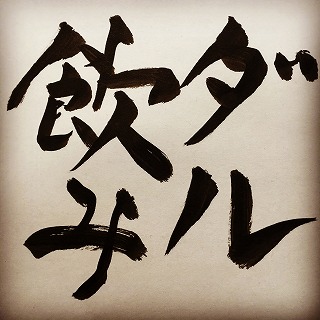 ダル
飲み